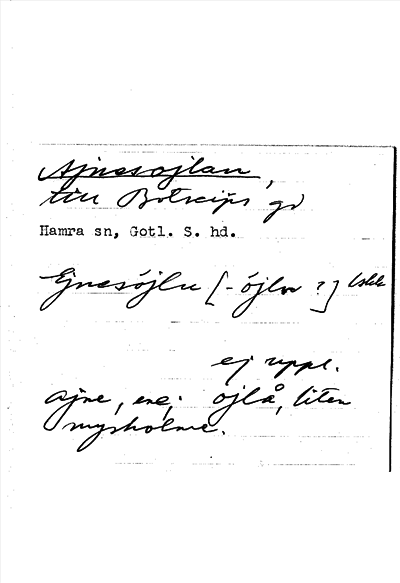 Ajnesojlan,
till Botreips gd
Hamra sn, Gotl. S. hd.
Ejnesöjlu [-öjlor ?]
ej uppl.
ajne, ene; ojlå, liten
myrholme.